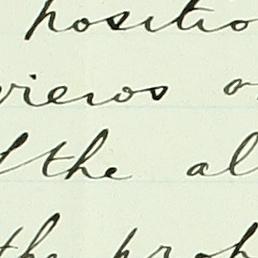 positio
views o
the al
the prob